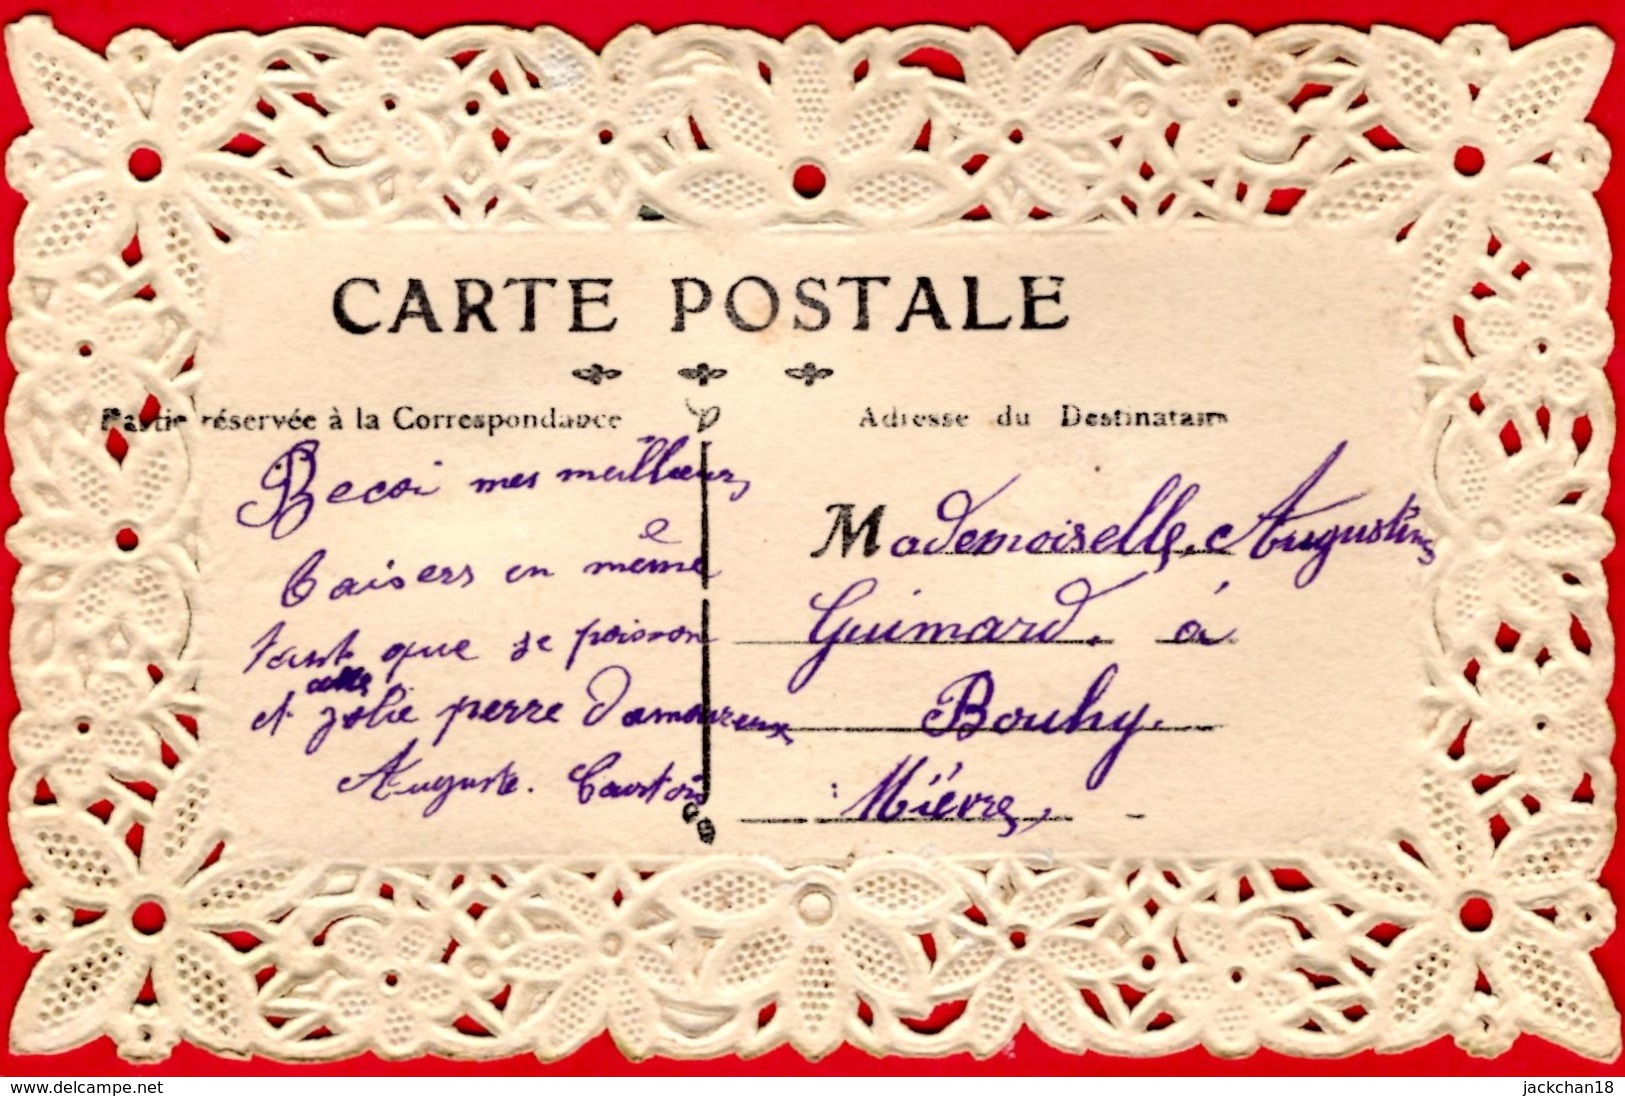 CARTE POSTALE
Partie réservée à la Correspondance
Adresse du Destinataire
Recoi mes meilleurs
baisers en même
tant que se poisson
et cette jolie perre d'amoureux
Auguste.
Mademoiselle Augustine
Guimard. à
Bouhy.
Nièvre,
www.delcampe.net
jackchan18